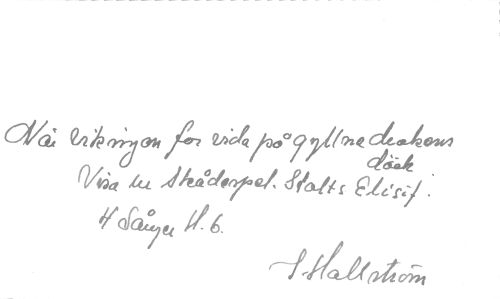 När vikingen for vida på gyllne drakens
däck
Visa ur Skådespel. Stolts Elisif.
4 Sånger H. 6.
I Hallström